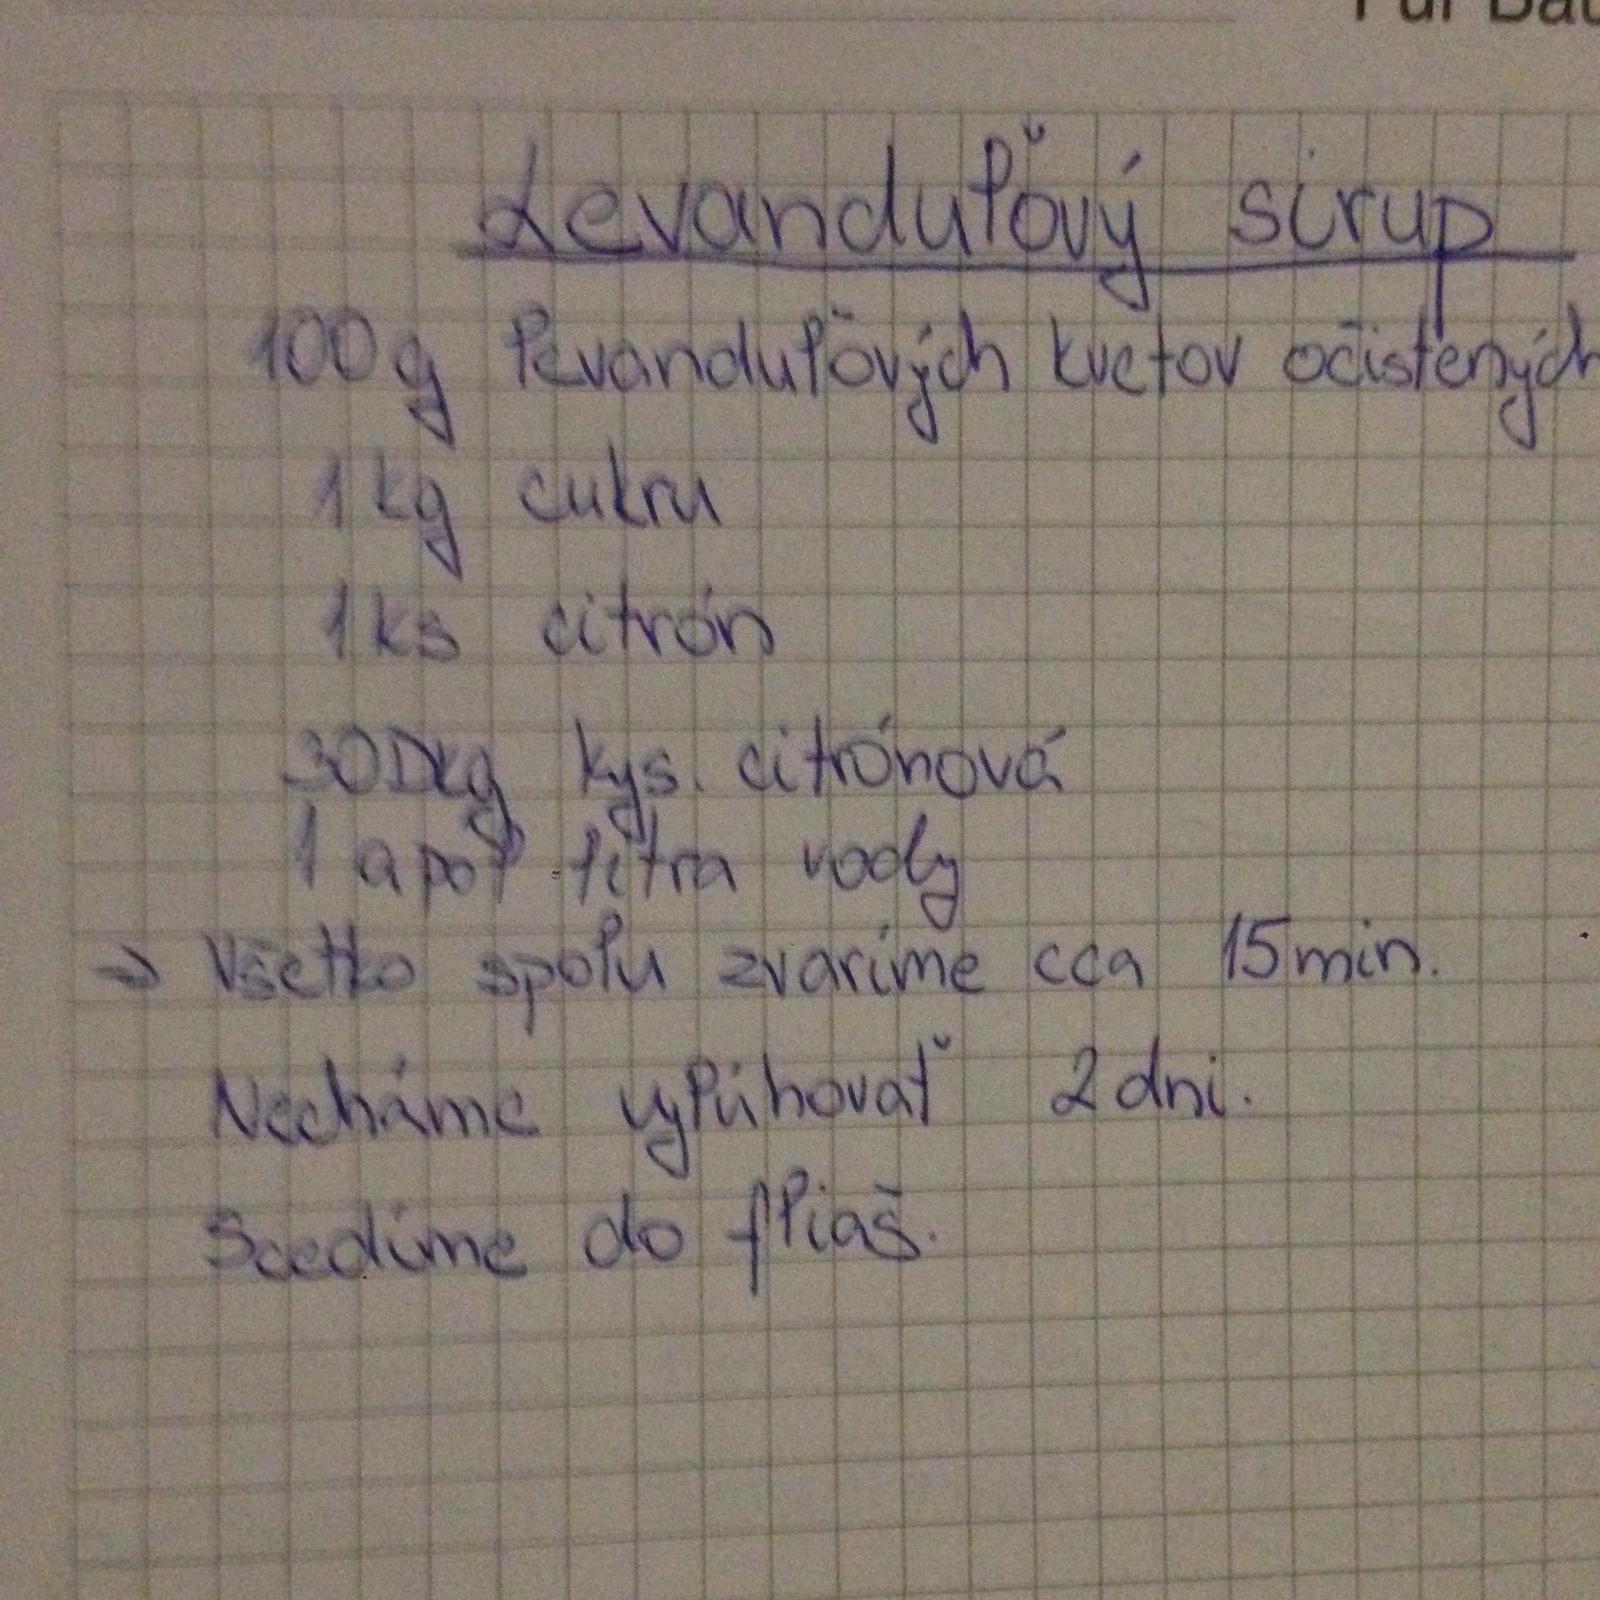 Für Bau
Levanduľový sirup
100g levanduľových kvetov očistených
1kg cukru
1ks citrón
30Dkg kys. citrónová
1 a pol litra vody
→ Všetko spolu zvaríme cca 15min.
Necháme vylúhovať 2 dni.
Scedíme do fliaš.